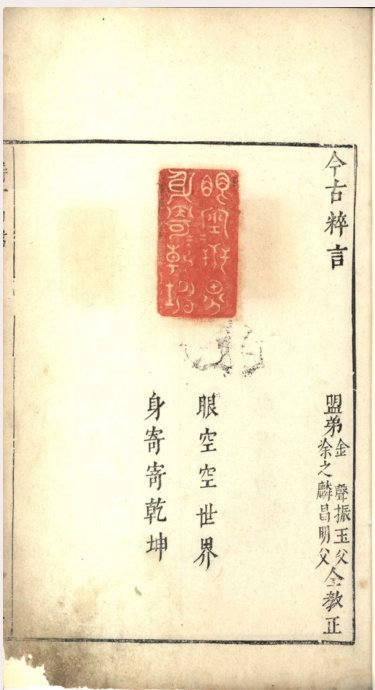 今古粹言
盟弟
金聲振玉父
徐之麟昌明父
仝教正
眼空〻世界
身寄〻乾坤
眼空空世界
身寄寄乾坤